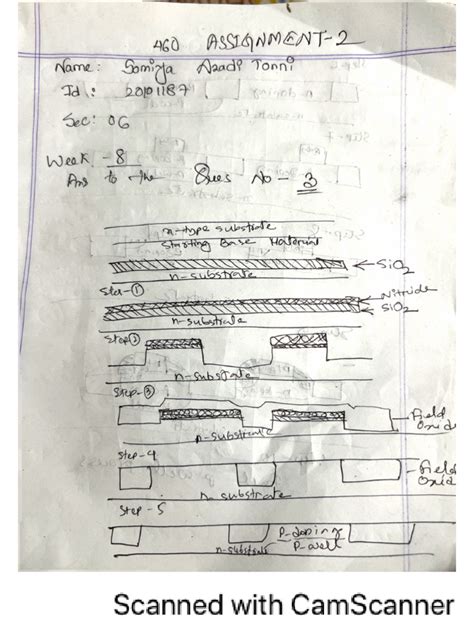 460 ASSIGNMENT-2
Name: Somiya Azadi Tonni
Id : 20101187
Sec: 06
Week - 8
Ans to the Ques No - 3
n-type substrate
Starting Base Material
SiO2
n-substrate
Step-①
Nitride
SiO2
n-substrate
Step②
n-substrate
Step-③
Field Oxide
n-substrate
Step-4
Field Oxide
n substrate
Step-5
P-doping
P-well
n-substrate
Scanned with CamScanner